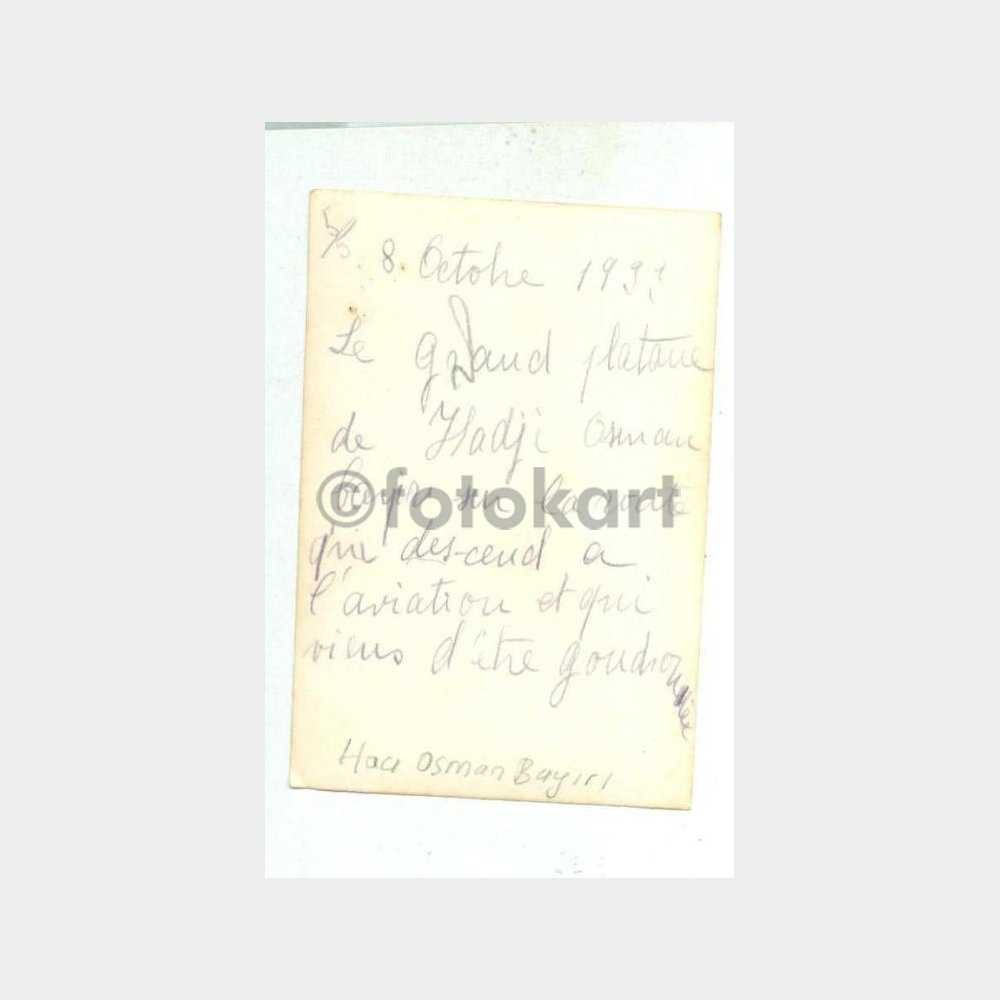 8. Octobre 193
Le grand platane
de Hadji Osman
bayir sur la route
qui des-cend a
l'aviation et qui
viens d'être goudronnée
Hacı Osman Bayırı
©fotokart